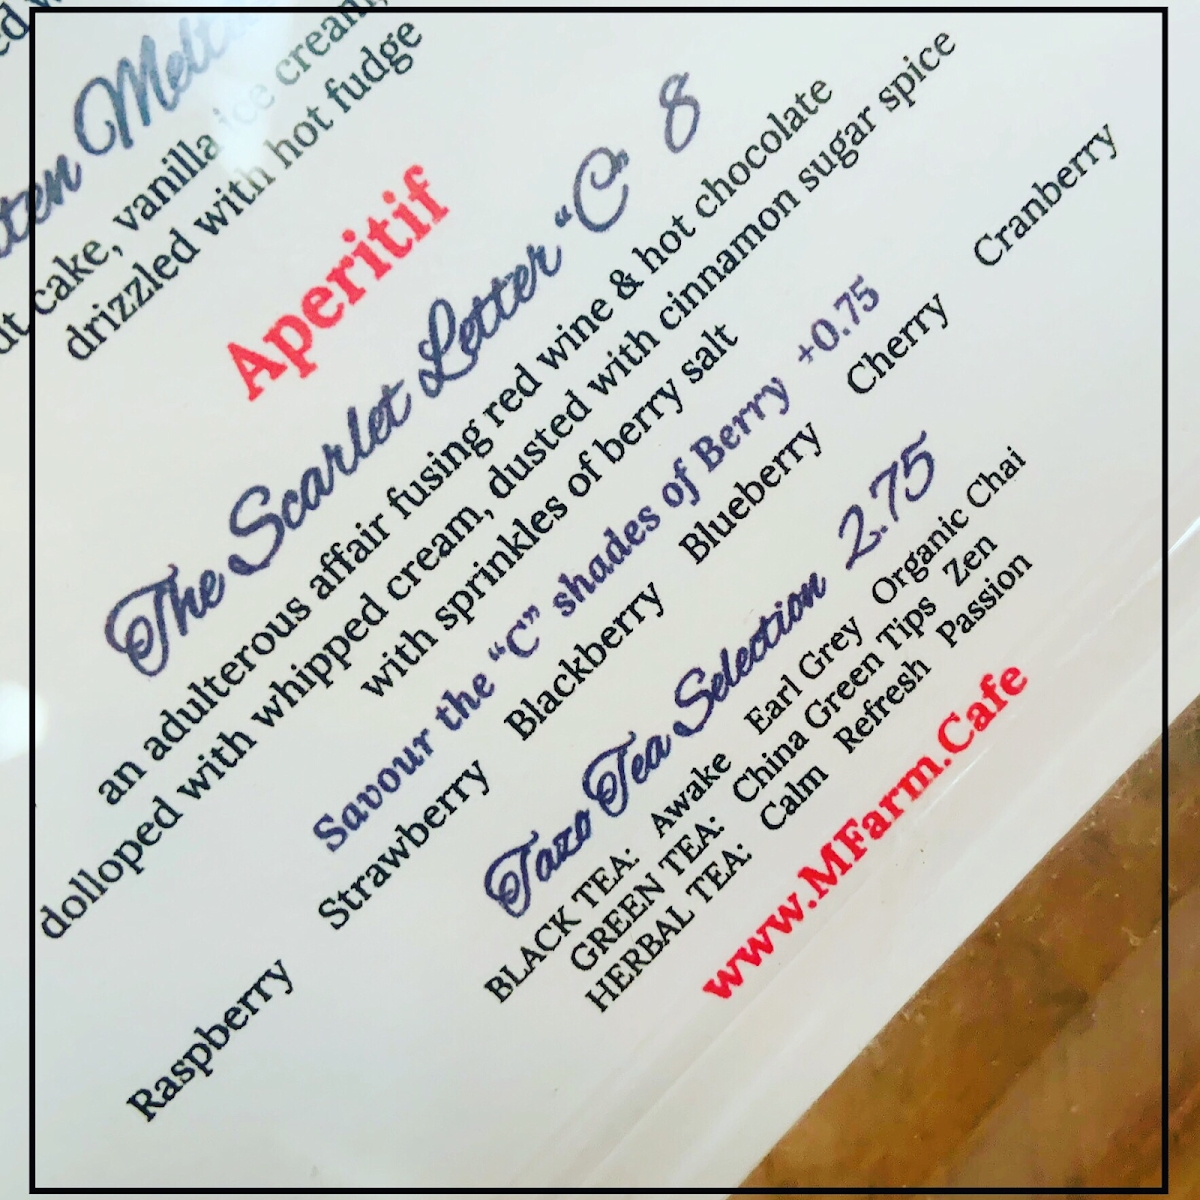 cake, vanilla ice cream,
drizzled with hot fudge
Aperitif
The Scarlet Letter "C" 8
an adulterous affair fusing red wine & hot chocolate
dolloped with whipped cream, dusted with cinnamon sugar spice
with sprinkles of berry salt
Savour the "C" shades of Berry +0.75
Raspberry Strawberry Blackberry Blueberry Cherry Cranberry
Tazo Tea Selection 2.75
BLACK TEA: Awake Earl Grey Organic Chai
GREEN TEA: China Green Tips Zen
HERBAL TEA: Calm Refresh Passion
www.MFarm.Cafe